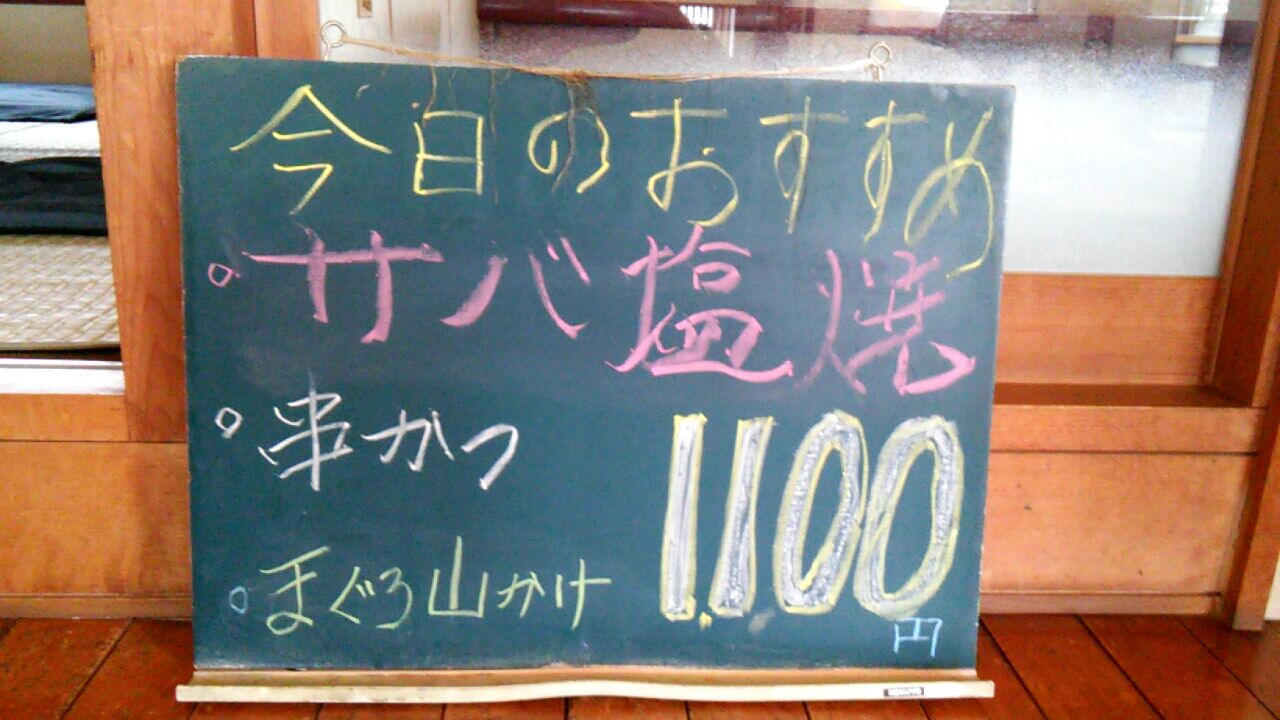 今日のおすすめ
○サバ塩焼
○串かつ
○まぐろ山かけ
1,100円